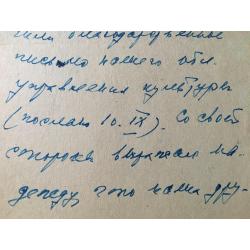 или благодарственное
письмо нашего обл.
управления культуры
(послано 10. IX). Со своей
стороны выражаем на-
дежду, что наша дру-